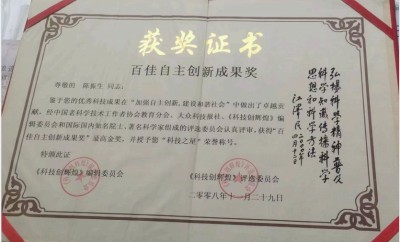 获奖证书
百佳自主创新成果奖
尊敬的 陈振生 同志:
鉴于您的优秀科技成果在“加强自主创新,建设和谐社会”中做出了卓越贡
献,经中国老科学技术工作者协会教育分会、大众科技报社、《科技创辉煌》编
辑委员会和国际国内知名院士、著名科学家组成的评选委员会认真评审,获得“百
佳自主创新成果奖”最高金奖,并授予您“科技之星”荣誉称号。
特颁此证
《科技创辉煌》编辑委员会
《科技创辉煌》评选委员会
二零零八年十一月二十九日
弘扬科学精神普及
科学知识传播科学
思想和科学方法
江泽民